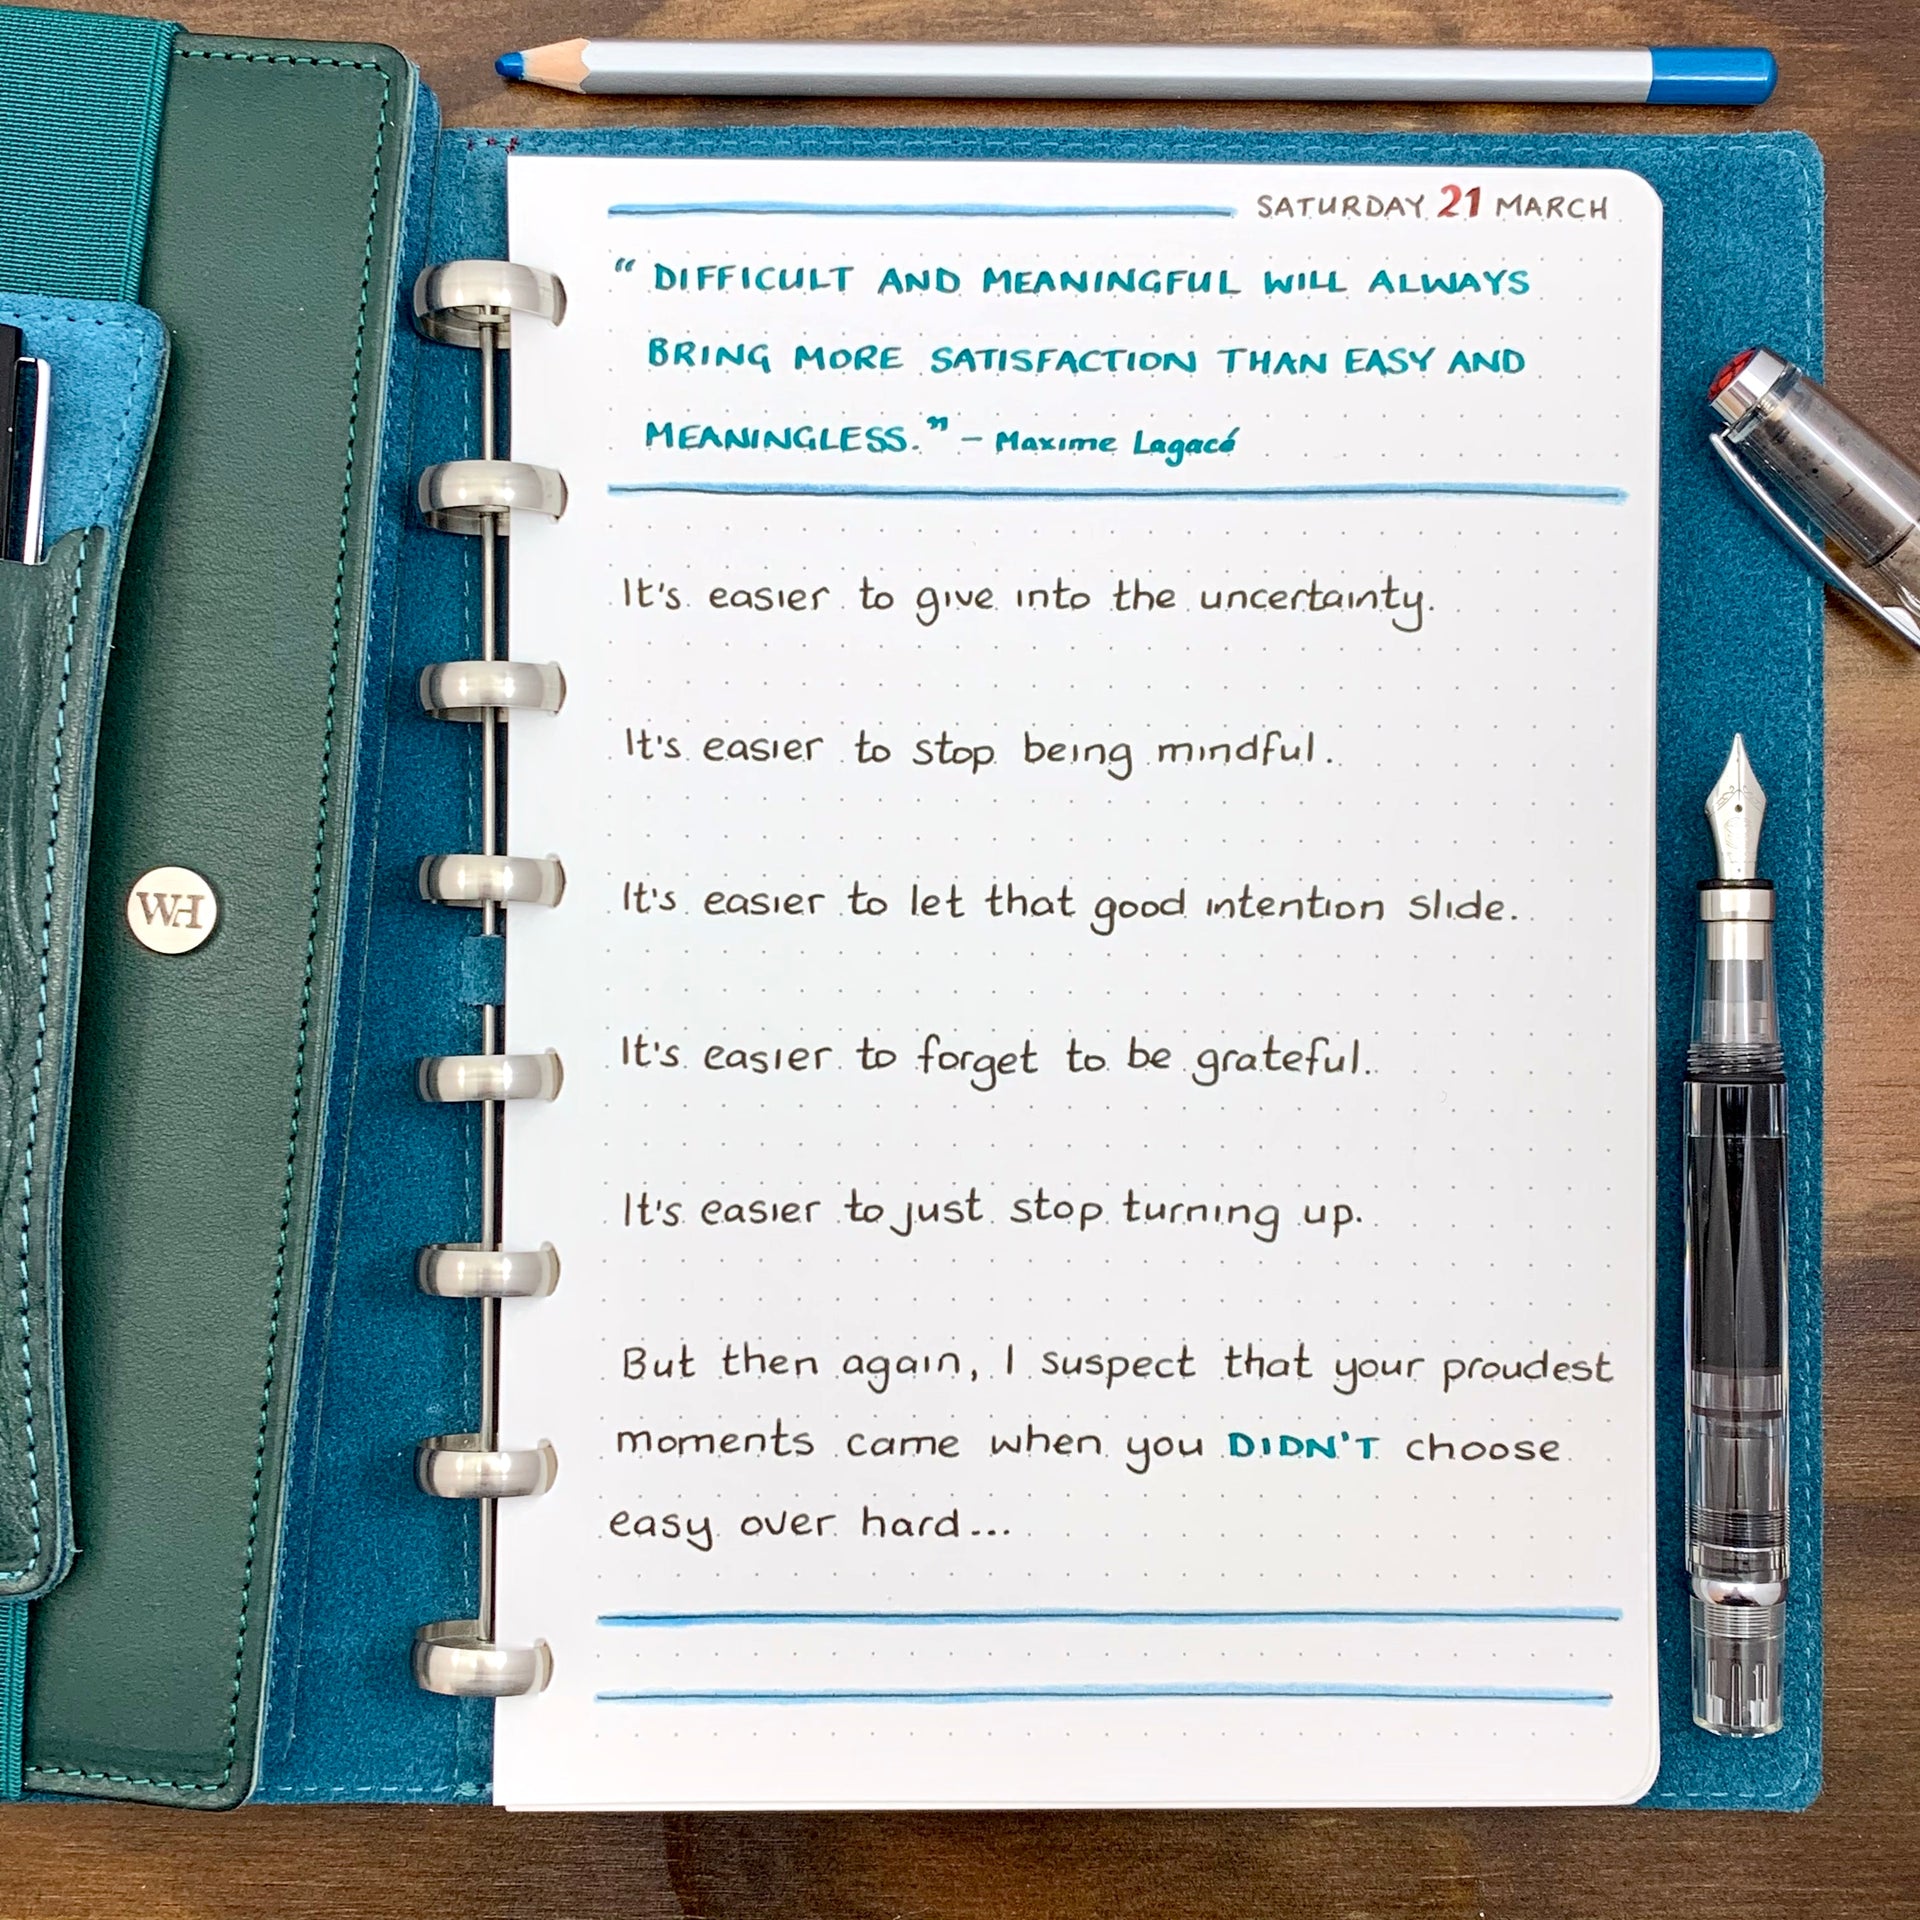 SATURDAY 21 MARCH
“DIFFICULT AND MEANINGFUL WILL ALWAYS
BRING MORE SATISFACTION THAN EASY AND
MEANINGLESS.” – Maxime Lagacé
It's easier to give into the uncertainty.
It's easier to stop being mindful.
It's easier to let that good intention slide.
It's easier to forget to be grateful.
It's easier to just stop turning up.
But then again, I suspect that your proudest
moments came when you DIDN'T choose
easy over hard...
WH